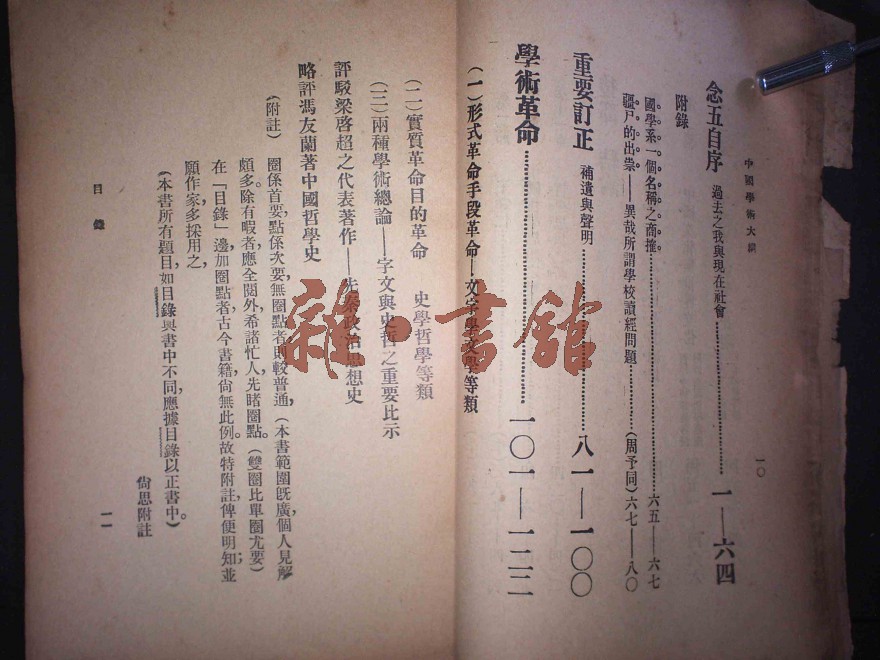 中國學術大綱
一〇
念五自序 過去之我與現在社會……一——六四
附錄
國學系一個名稱之商搉……六五——六七
殭尸的出祟——異哉所謂學校讀經問題……(周予同)六七——八〇
重要訂正 補遺與聲明……八一——一〇〇
學術革命……一〇一——一二二
(一)形式革命手段革命——文字學文學等類
(二)實質革命目的革命 史學哲學等類
(三)兩種學術總論——字文與史哲之重要比示
評駁梁啓超之代表著作——先秦政治思想史
略評馮友蘭著中國哲學史
(附註) 圈係首要,點係次要,無圈點者則較普通,(本書範圍旣廣,個人見解
頗多除有暇者,應全閱外,希諸忙人先睹圈點。(雙圈比單圈尤要)
在「目錄」邊加圈點者,古今書籍尙無此例。故特附註俾便明知並
願作家,多採用之,
(本書所有題目,如目錄與書中不同,應據目錄以正書中)。
尙思附註
目錄
一一
雜·書館